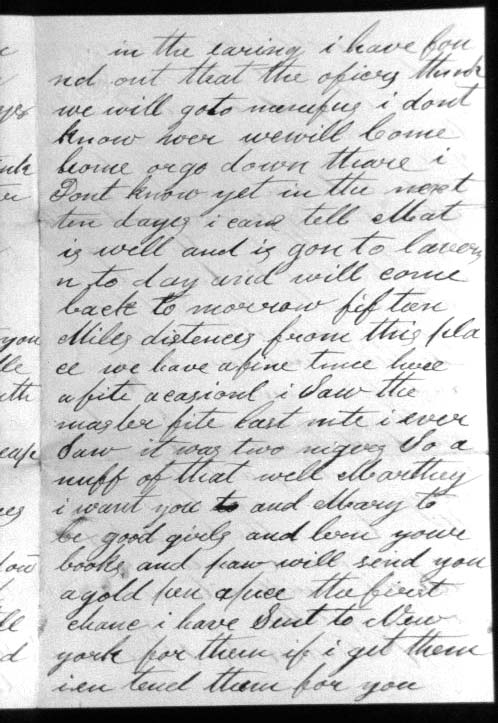 in the earing i have fou
nd out that the oficers think
we will goto memfus i dont
know wer wewill Come
home or go down thare i
Dont know yet in the next
ten dayes i cane tell Mat
is well and is gon to laverg
n to day and will come
back to morrow fiften
Miles distences from this pla
ce we have afine time here
afite acasionl i Saw the
master fite last nite i ever
Saw it was two nigers So a
nuff of that well Marthey
i want you to and Mary to
be good girls and lern youre
books and paw will send you
agold pen apiece the first
chanc i have Sent to New
york for them if i get them
i en tend them for you